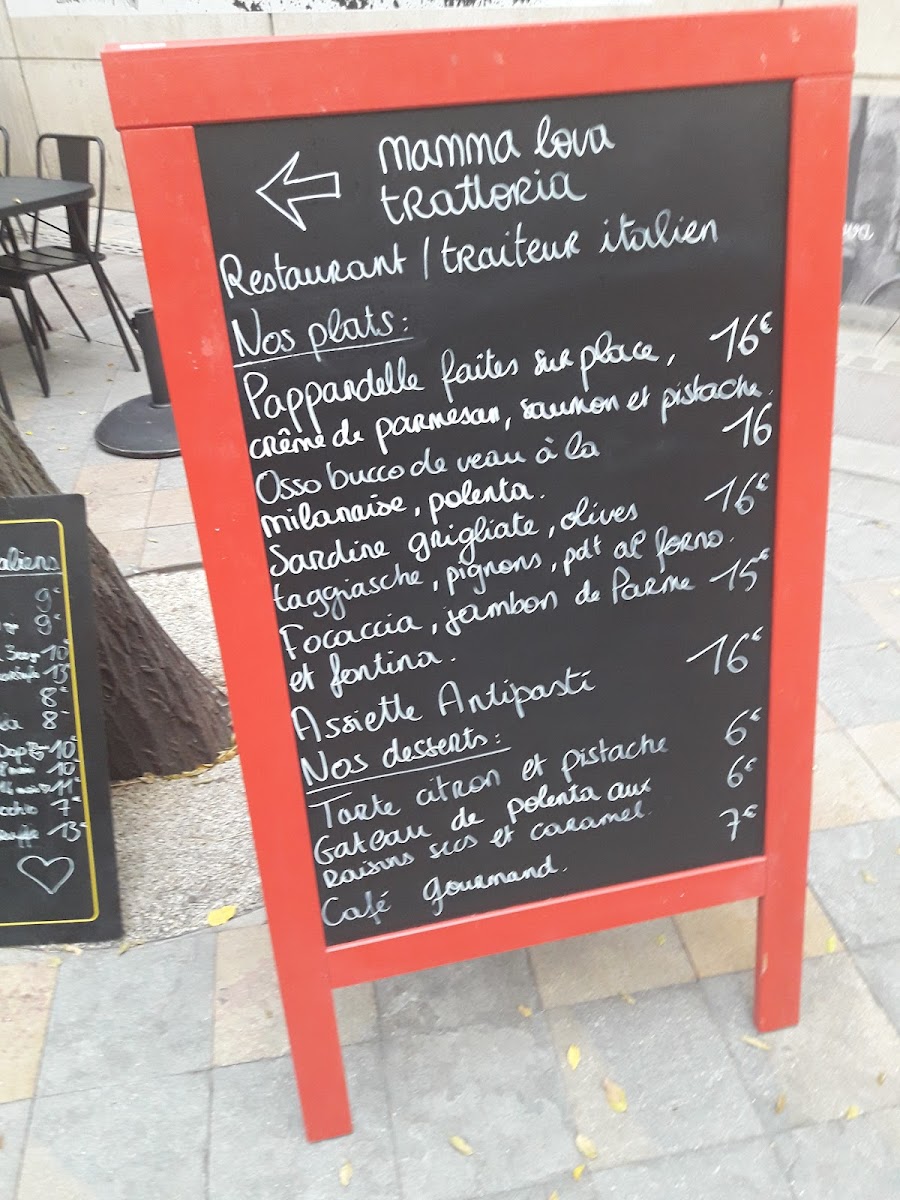 Mamma Lova
trattoria
Restaurant / traiteur italien
Nos plats :
Pappardelle faites sur place, 16€
crème de parmesan, saumon et pistache.
Osso bucco de veau à la 16
milanaise, polenta.
Sardine grigliate, olives 16€
taggiasche, pignons, pdt al forno.
Focaccia, jambon de Parme 15€
et fontina.
Assiette Antipasti 16€
Nos desserts :
Tarte citron et pistache 6€
Gateau de polenta aux 6€
Raisins secs et caramel.
Café gourmand. 7€
aliens
9€
9€
10€
13€
8€
8€
10€
10€
11€
7€
13€